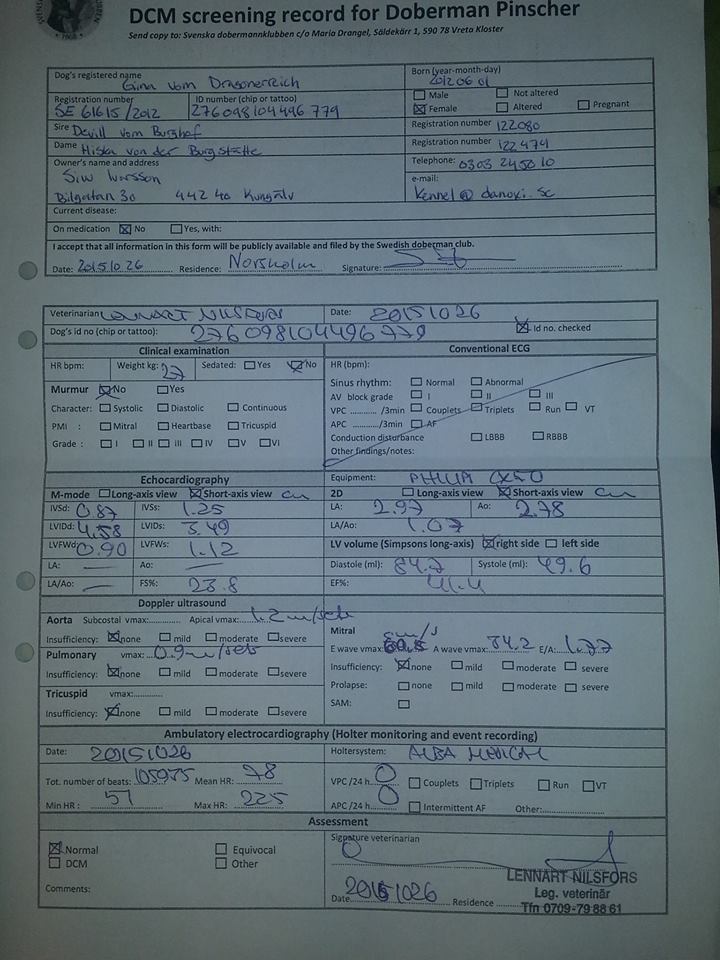 DCM screening record for Doberman Pinscher
Send copy to: Svenska dobermannklubben c/o Maria Drangel, Säldekärr 1, 590 78 Vreta Kloster
Dog's registered name Gina vom Dragonerreich
Born (year-month-day) 2012 06 01
Male Not altered
Female Altered Pregnant
Registration number SE 61615/2012 ID number (chip or tattoo) 276098104496779
Sire Devill vom Burghof Registration number 122080
Dame Hiska von der Burgstätte Registration number 122474
Owner's name and address Telephone: 0303 245010
Siw
Bilgatan 30 442 40 Kungälv
e-mail: Kennel@danoxi.se
Current disease:
On medication No Yes, with:
I accept that all information in this form will be publicly available and filed by the Swedish doberman club.
Date: 20151026 Residence: Norsholm Signature:
Veterinarian LENNART NILSFORS Date: 20151026
Dog's id no (chip or tattoo): 276098104496779 Id no. checked
Clinical examination Conventional ECG
HR bpm: Weight kg: 27 Sedated: Yes No
HR (bpm):
Murmur No Yes
Sinus rhythm: Normal Abnormal
AV block grade I II III
Character: Systolic Diastolic Continuous
VPC ............ /3min Couplets Triplets Run VT
PMI : Mitral Heartbase Tricuspid
APC ............ /3min AF
Grade : I II III IV V VI
Conduction disturbance LBBB RBBB
Other findings/notes:
Echocardiography Equipment: PHILIP CX50
M-mode Long-axis view Short-axis view cm
2D Long-axis view Short-axis view cm
IVSd: 0.87 IVSs: 1.25 LA: 2.97 Ao: 2.78
LVIDd: 4.58 LVIDs: 3.49 LA/Ao: 1.07
LVFWd 0.90 LVFWs: 1.12 LV volume (Simpsons long-axis) right side left side
LA: — Ao: — Diastole (ml): 84.7 Systole (ml): 49.6
LA/Ao: — FS%: 23.8 EF%: 41.4
Doppler ultrasound
Aorta Subcostal vmax:............. Apical vmax: 1.2 m/sek
Insufficiency: none mild moderate severe
Mitral cm/s
Pulmonary vmax: 0.9 m/sek
E wave vmax: A wave vmax: 34.2 E/A: 1.77
Insufficiency: none mild moderate severe
Insufficiency: none mild moderate severe
Tricuspid vmax:.............
Prolapse: none mild moderate severe
Insufficiency: none mild moderate severe
SAM:
Ambulatory electrocardiography (Holter monitoring and event recording)
Date: 20151026 Holtersystem: ALBA MEDICAL
Tot. number of beats: 105975 Mean HR: 78
VPC /24 h 0 Couplets Triplets Run VT
Min HR : 51 Max HR: 225
APC /24 h 0 Intermittent AF Other:
Assessment
Normal Equivocal
DCM Other
Signature veterinarian
Comments:
LENNART NILSFORS
Leg. veterinär
Tfn 0709-79 88 61
Date 20151026 Residence